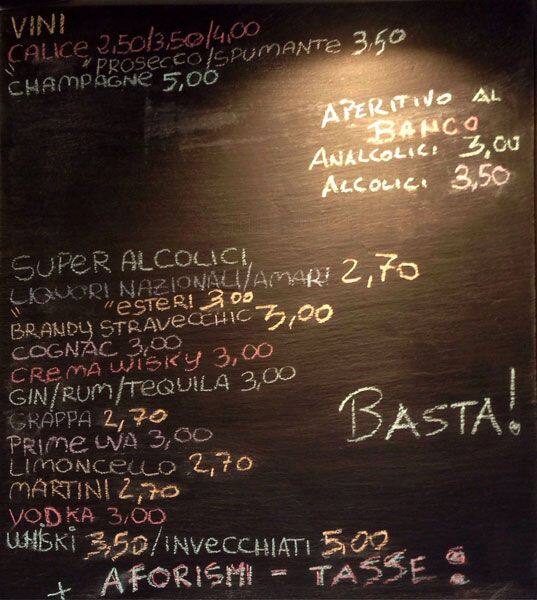 VINI
CALICE 2,50/3,50/4,00
" " PROSECCO/SPUMANTE 3,50
CHAMPAGNE 5,00
APERITIVO AL
BANCO
ANALCOLICI 3,00
ALCOLICI 3,50
SUPER ALCOLICI,
LIQUORI NAZIONALI/AMARI 2,70
" "ESTERI 3,00
BRANDY STRAVECCHIC 3,00
COGNAC 3,00
CREMA WISKY 3,00
GIN/RUM/TEQUILA 3,00
GRAPPA 2,70
PRIME UVA 3,00
LIMONCELLO 2,70
MARTINI 2,70
VODKA 3,00
WHISKI 3,50/INVECCHIATI 5,00
BASTA!
+ AFORISMI - TASSE!